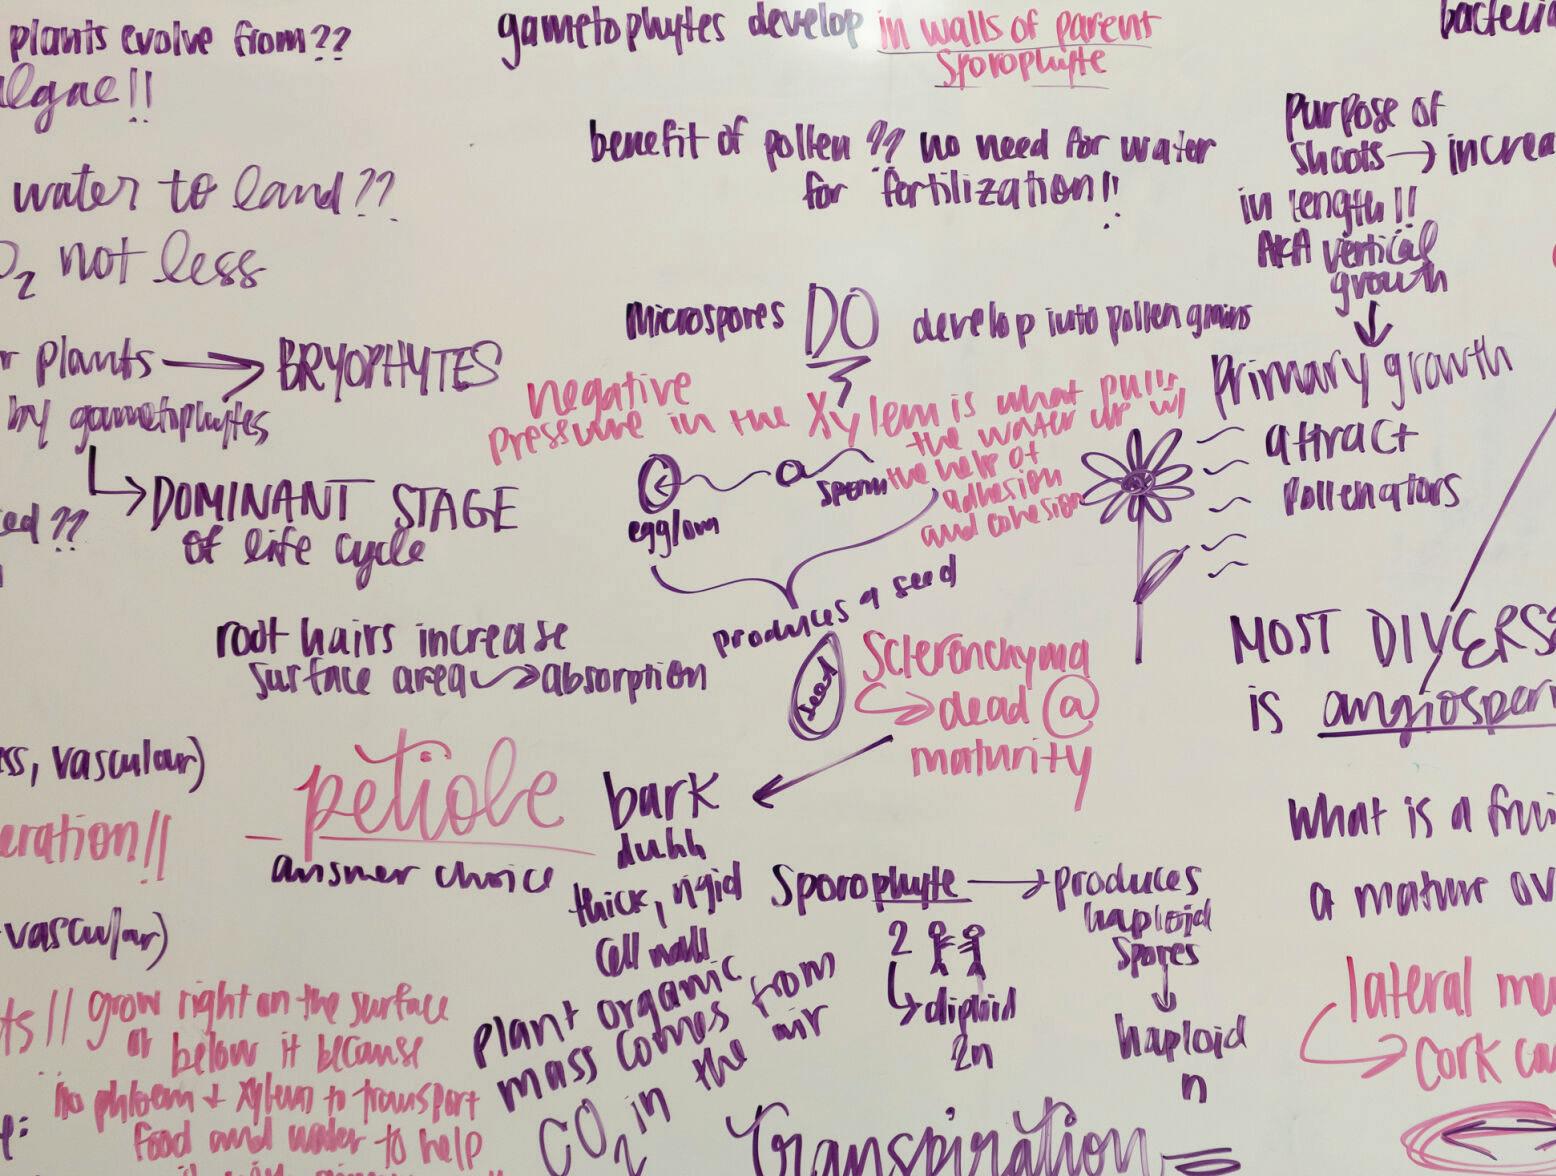 plants evolve from??
algae!!
water to land??
O2 not less
plants → BRYOPHYTES
by gametophytes
DOMINANT STAGE
of life cycle
gametophytes develop in walls of parent
sporophyte
benefit of pollen ?? no need for water
for fertilization!!
microspores DO develop into pollen grains
negative
pressure in the xylem is what pulls
the water up w/
the help of
adhesion
and cohesion
sperm
egg/ovum
produces a seed
seed
bacteria
purpose of
shoots →
in length!!
AKA vertical
growth
primary growth
attract
pollenators
MOST DIVERSE
is angiosper
root hairs increase
surface area → absorption
Sclerenchyma
→ dead @
maturity
, vascular)
eration!!
vascular)
petiole
answer choice
bark
duhh
thick, rigid
cell wall
plant organic
mass comes from
CO2 in the air
Sporophyte → produces
haploid
spores
2
→ diploid
2n
haploid
n
what is a frui
a mature ov
lateral me
cork ca
ts!! grow right on the surface
or below it because
no phloem + xylem to transport
food and water to help
Transpiration =